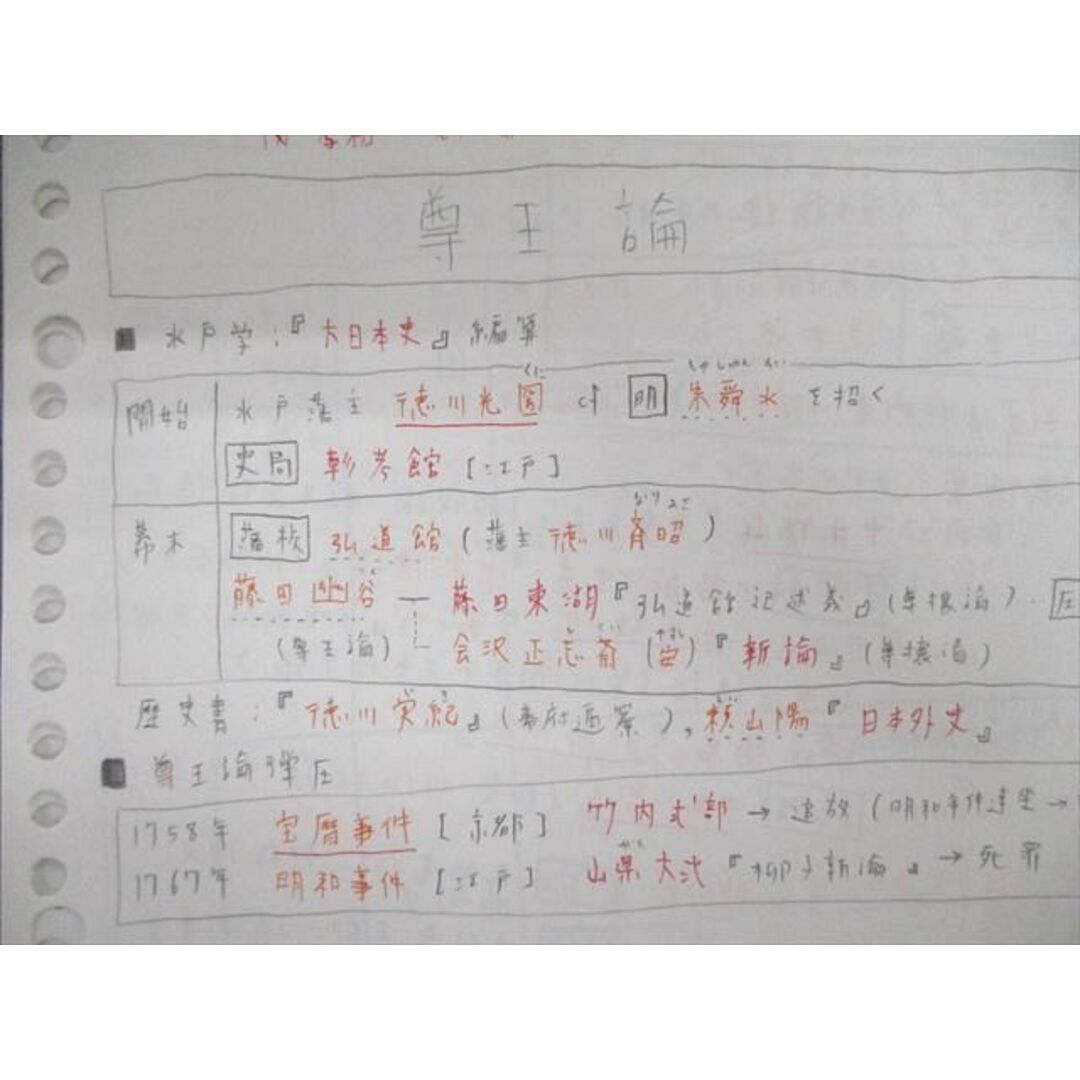 尊王論
■ 水戸学:『大日本史』編纂
開始 水戸藩主 徳川光圀 が 明 朱舜水 を招く
史局 彰考館 [江戸]
幕末 藩校 弘道館 (藩主 徳川斉昭)
藤田幽谷 ― 藤田東湖『弘道館記述義』(尊攘論)
(尊王論) 会沢正志斎 (安)『新論』(尊攘論)
歴史書:『徳川実紀』(幕府通鑑), 頼山陽『日本外史』
■ 尊王論弾圧
1758年 宝暦事件 [京都] 竹内式部 → 追放 (明和事件連坐→
1767年 明和事件 [江戸] 山県大弐『柳子新論』→ 死罪